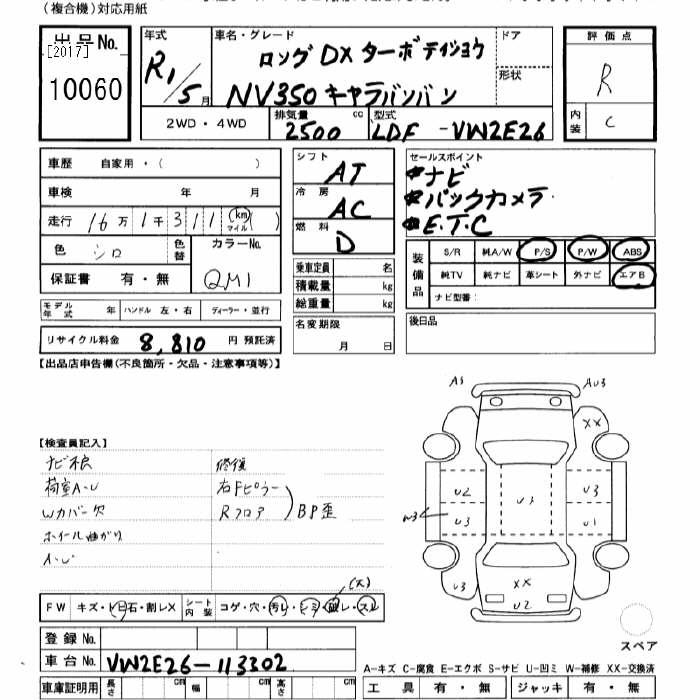 (複合機)対応用紙
出品No.
[2017]
10060
年式
R1/5月
車名・グレード
ロングDXターボ
NV350キャラバンバン
ドア
形状
評価点
R
内装
C
2WD・4WD
排気量
2500 cc
型式
LDF-VW2E26
車歴 自家用・( )
車検 年 月
走行 16万1千311(km マイル)( )
色 シロ
色替
カラーNo.
QM1
保証書 有・無
モデル年式 年 ハンドル 左・右 ディーラー・並行
リサイクル料金 8,810 円 預託済
シフト
AT
冷房
AC
燃料
D
乗車定員 名
積載量 kg
総重量 kg
名変期限
月 日
セールスポイント
ナビ
バックカメラ
E.T.C
装備品
S/R 純A/W P/S P/W ABS
純TV 純ナビ 革シート 外ナビ エアB
ナビ型番:
後日品
【出品店申告欄(不良箇所・欠品・注意事項等)】
【検査員記入】
荷室A・U
Wカバー欠
ホイール曲がり
A・U
修復
右Fピラー
Rフロア
BP歪
(大)
FW キズ・ヒビ・石・割レX シート内装 コゲ・穴・汚レ・シミ・破レ・スレ
登録No.
車台No. VW2E26-113302
車庫証明用 長さ cm 幅 cm 高さ cm
AU3
XX
U2
U3
U3
U3
W3
U3
U1
U3
XX
U2
スペア
A-キズ C-腐食 E-エクボ S-サビ U-凹ミ W-補修 XX-交換済
工具 有・無 ジャッキ 有・無